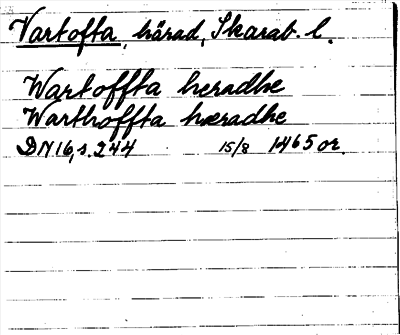 Vartofta, härad, Skarab. l.
Wartoffta heradhe
Warthoffta hæradhe
DN 16, s. 244 15/8 1465 or.